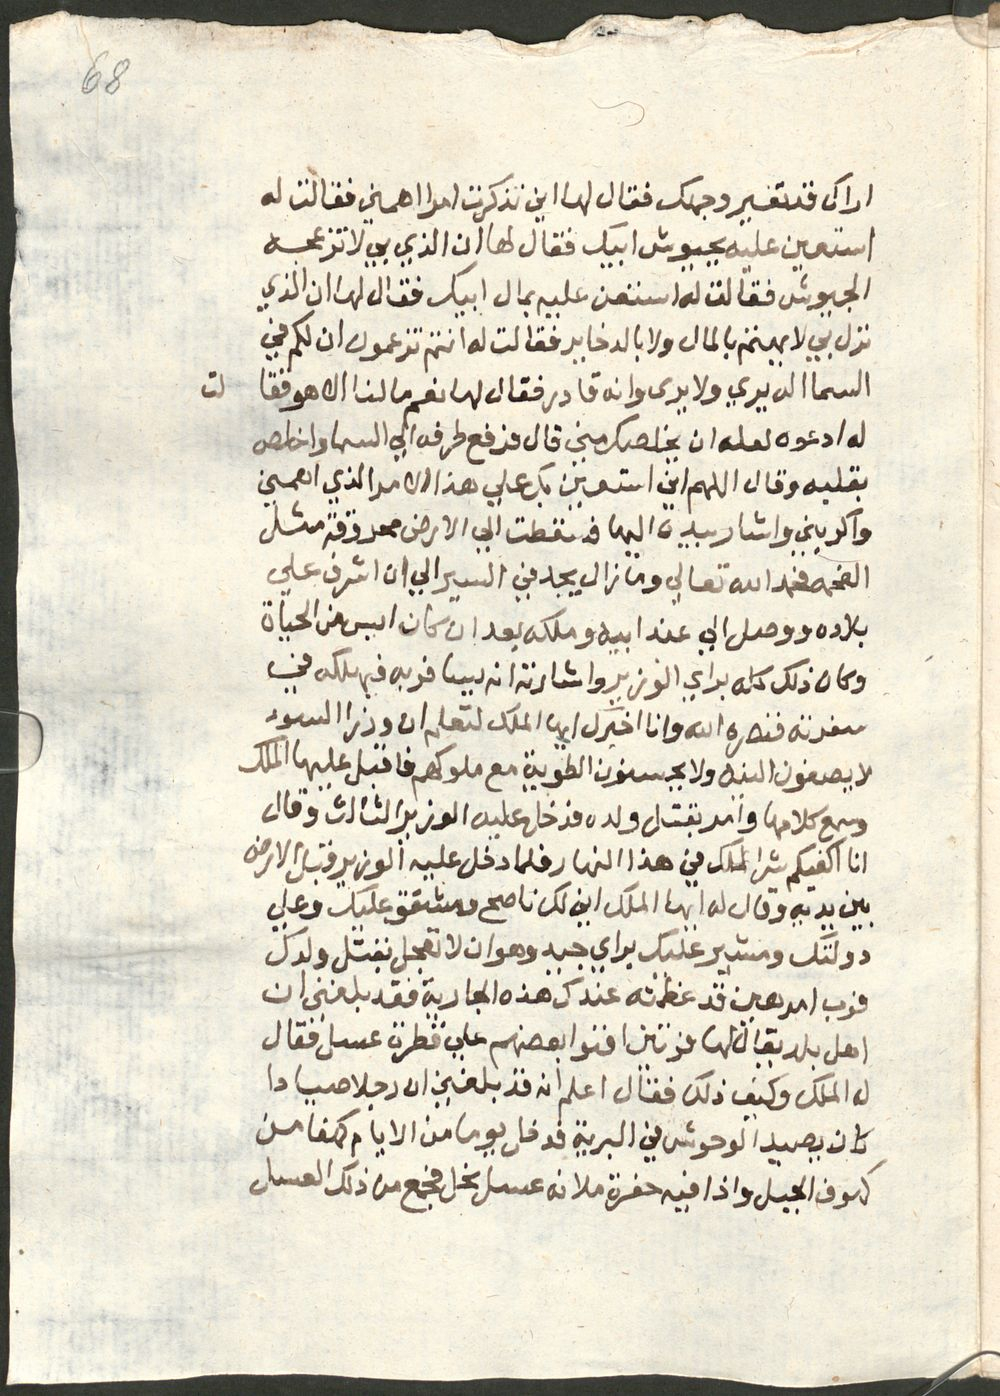 68
اراك قد تغير وجهك فقال لها اني تذكرت امرا اهمني فقالت له
استعين عليه بجيوش ابيك فقال لها ان الذي بي لا تزعجه
الجيوش فقالت له استعن عليه بمال ابيك فقال لها ان الذي
نزل بي لا يهتم بالمال ولا بالدخاير فقالت له انتم تزعمون ان لكم في
السما اله يري ولا يرى وانه قادر فقال لها نعم ما لنا الا هو فقا لت
له ادعوه لعله ان يخلصك مني قال فرفع طرفه الي السما واخلص
بقلبه وقال اللهم اني استعين بك علي هذا الامر الذي اهمني
واكربني واشار بيده اليها فسقطت الي الارض محروقة مثل
الفحمه فحمد الله تعالي وما زال يجد في السير الي ان اشرف علي
بلاده ووصل الي عند ابيه وملكه بعد ان كان ايس من الحياة
وكان ذلك كله براي الوزير واشارته انه يسافر به فيهلكه في
سفرته فنصره الله وانا اخبرك ايها الملك لتعلم ان وزرا السوء
لا يصفون النيه ولا يحسنون الطوية مع ملوكهم فاقبل عليها الملك
وسمع كلامها وامر بقتل ولده فدخل عليه الوزير الثالث وقال
انا اكفيكم شر الملك في هذا النهار فلما دخل عليه الوزير قبل الارض
بين يديه وقال له ايها الملك اني لك ناصح ومشفق عليك وعلي
دولتك ومشير عليك براي جيد وهو ان لا تعجل بقتل ولدك
فرب امر هين قد عظمته عندك هذه الجارية فقد بلغني ان
اهل بلد يقال لها قرتين افنوا بعضهم علي قطرة عسل فقال
له الملك وكيف ذلك فقال اعلم انه قد بلغني ان رجلا صيادا
كان يصيد الوحوش في البرية فدخل يوما من الايام كهفا من
كهوف الجبل واذا فيه حفرة ملانه عسل نحل فجمع من ذلك العسل